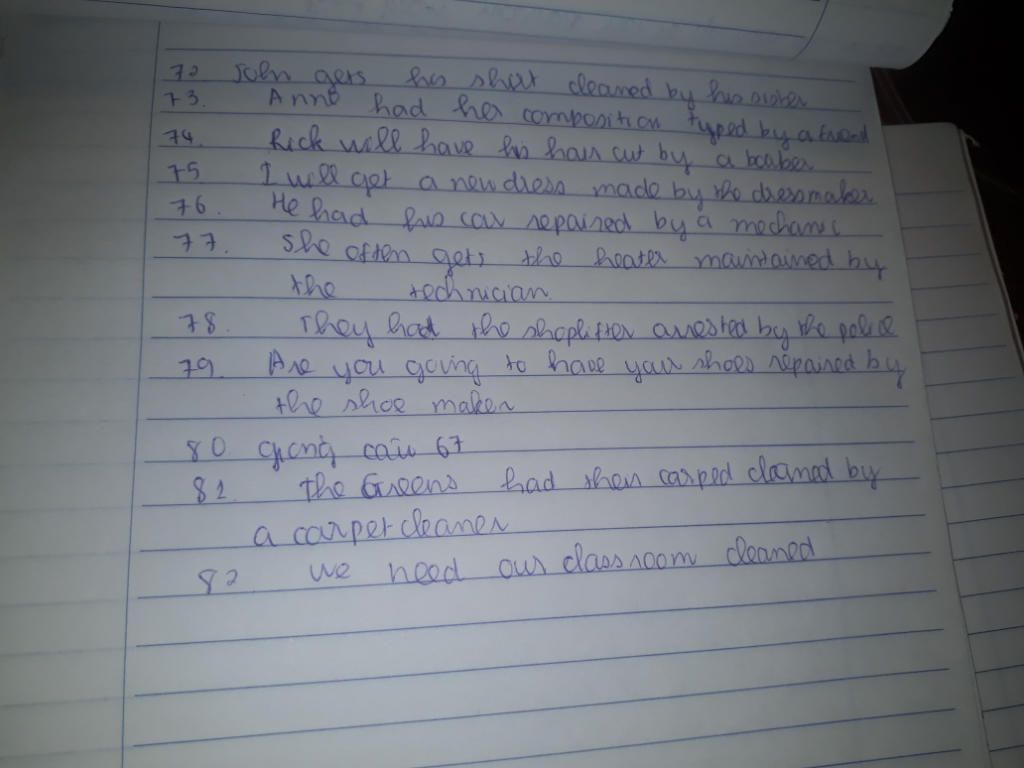 72 John gets his shirt cleaned by his sister
73. Anne had her composition typed by a friend
74. Rick will have his hair cut by a barber
75 I will get a new dress made by the dressmaker
76. He had his car repaired by a mechanic
77. She often gets the heater maintained by
the technician.
78. They had the shoplifter arrested by the police
79. Are you going to have your shoes repaired by
the shoe maker
80 giống câu 67
81. The Greens had their carped cleaned by
a carpet cleaner
82 we need our classroom cleaned